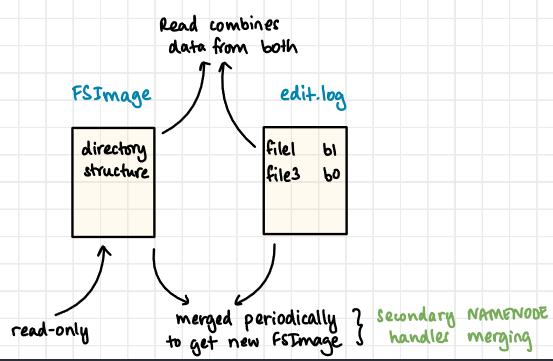 Read combines
data from both
FSImage
edit.log
directory
structure
file1 b1
file3 b0
read-only
merged periodically
to get new FSImage
secondary NAMENODE
handles merging